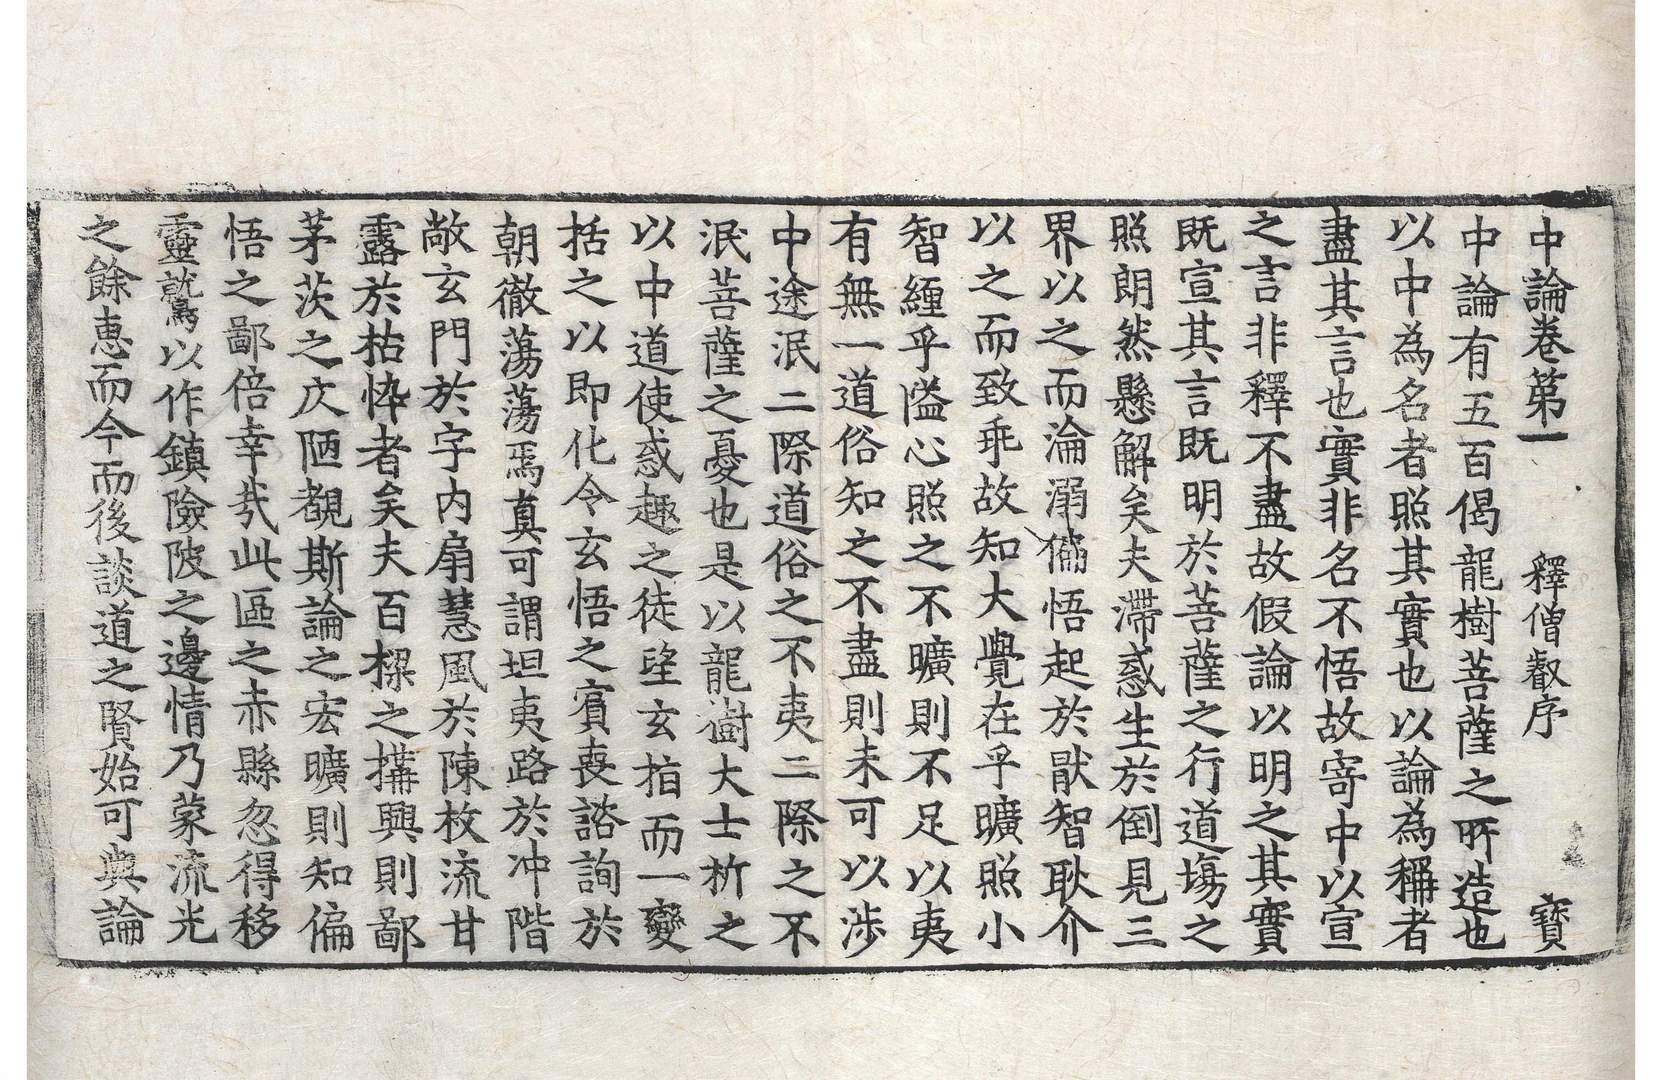 中論卷第一 釋僧叡序 寶
中論有五百偈龍樹菩薩之所造也
以中為名者照其實也以論為稱者
盡其言也實非名不悟故寄中以宣
之言非釋不盡故假論以明之其實
既宣其言既明於菩薩之行道場之
照朗然懸解矣夫滯惑生於倒見三
界以之而淪溺偏悟起於猒智耿介
以之而致乖故知大覺在乎曠照小
智纏乎隘心照之不曠則不足以夷
有無一道俗知之不盡則未可以涉
中途泯二際道俗之不夷二際之不
泯菩薩之憂也是以龍樹大士析之
以中道使惑趣之徒望玄指而一變
括之以即化令玄悟之賓喪諮詢於
朝徹蕩蕩焉真可謂坦夷路於沖階
敞玄門於宇內扇慧風於陳枚流甘
露於枯悴者矣夫百樑之搆興則鄙
茅茨之仄陋覩斯論之宏曠則知偏
悟之鄙倍幸哉此區之赤縣忽得移
靈鷲以作鎮險陂之邊情乃蒙流光
之餘惠而今而後談道之賢始可與論